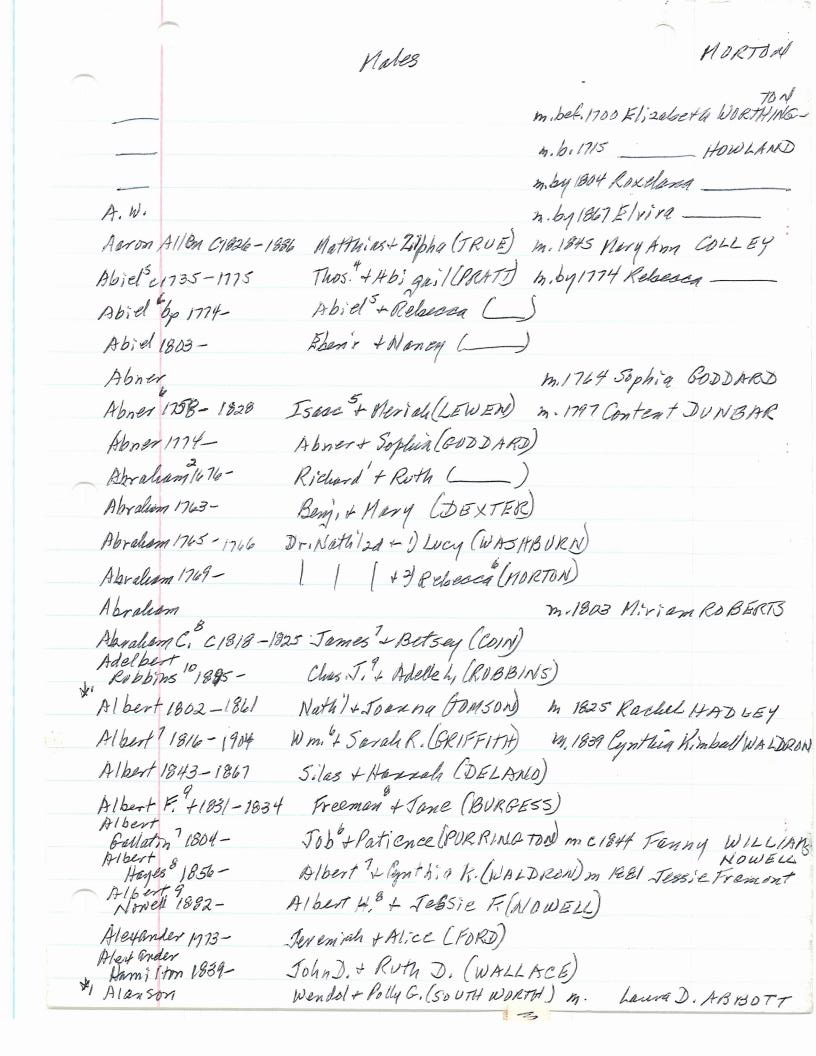 Males MORTON
m. bef. 1700 Elizabeth WORTHING-TON
m. b. 1715 ______ HOWLAND
m. by 1804 Roxelana ______
A. W. m. by 1867 Elvira ______
Aaron Allen c1826-1886 Matthias + Zilpha (TRUE) m. 1845 Mary Ann COLLEY
Abiel⁵ c1735-1775 Thos.⁴ + Abigail (PRATT) m. by 1774 Rebecca ______
Abiel⁶ bp 1774- Abiel⁵ + Rebecca (____)
Abiel 1803- Eben'r + Nancy (____)
Abner m. 1764 Sophia GODDARD
Abner⁶ 1758-1828 Isaac⁵ + Meriah (LEWEN) m. 1797 Content DUNBAR
Abner 1774- Abner + Sophia (GODDARD)
Abraham² 1676- Richard¹ + Ruth (____)
Abraham 1763- Benj. + Mary (DEXTER)
Abraham 1765-1766 Dr. Nath'l 2d + 1) Lucy (WASHBURN)
Abraham 1769- | | | + 2) Rebecca⁶ (MORTON)
Abraham m. 1803 Miriam ROBERTS
Abraham C.⁸ c1818-1825 James⁷ + Betsey (COIN)
Adelbert
Robbins¹⁰ 1885- Chas. J.⁹ + Adelle L. (ROBBINS)
*1
Albert 1802-1861 Nath'l + Joanna (TOMSON) m 1825 Rachel HADLEY
Albert⁷ 1816-1904 Wm.⁶ + Sarah R. (GRIFFITH) m. 1839 Cynthia Kimball WALDRON
Albert 1843-1867 Silas + Hannah (DELANO)
Albert F.⁹ +1831-1834 Freeman⁸ + Jane (BURGESS)
Albert
Gallatin⁷ 1804- Job⁶ + Patience (PURRINGTON) m c1844 Fanny WILLIAMS
Albert NOWELL
Hayes⁸ 1856- Albert⁷ + Cynthia K. (WALDRON) m 1881 Jessie Fremont
Albert⁹
Nowell 1882- Albert H.⁸ + Jessie F. (NOWELL)
Alexander 1773- Jeremiah + Alice (FORD)
Alexander
Hamilton 1839- John D. + Ruth D. (WALLACE)
*1 Alanson Wendol + Polly G. (SOUTHWORTH) m. Laura D. ABBOTT
3